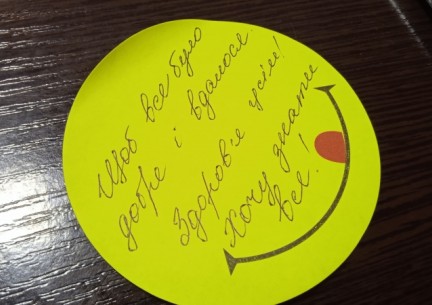 Щоб все було
добре і вдалося.
Здоров'я усім!
Хочу знати
все!